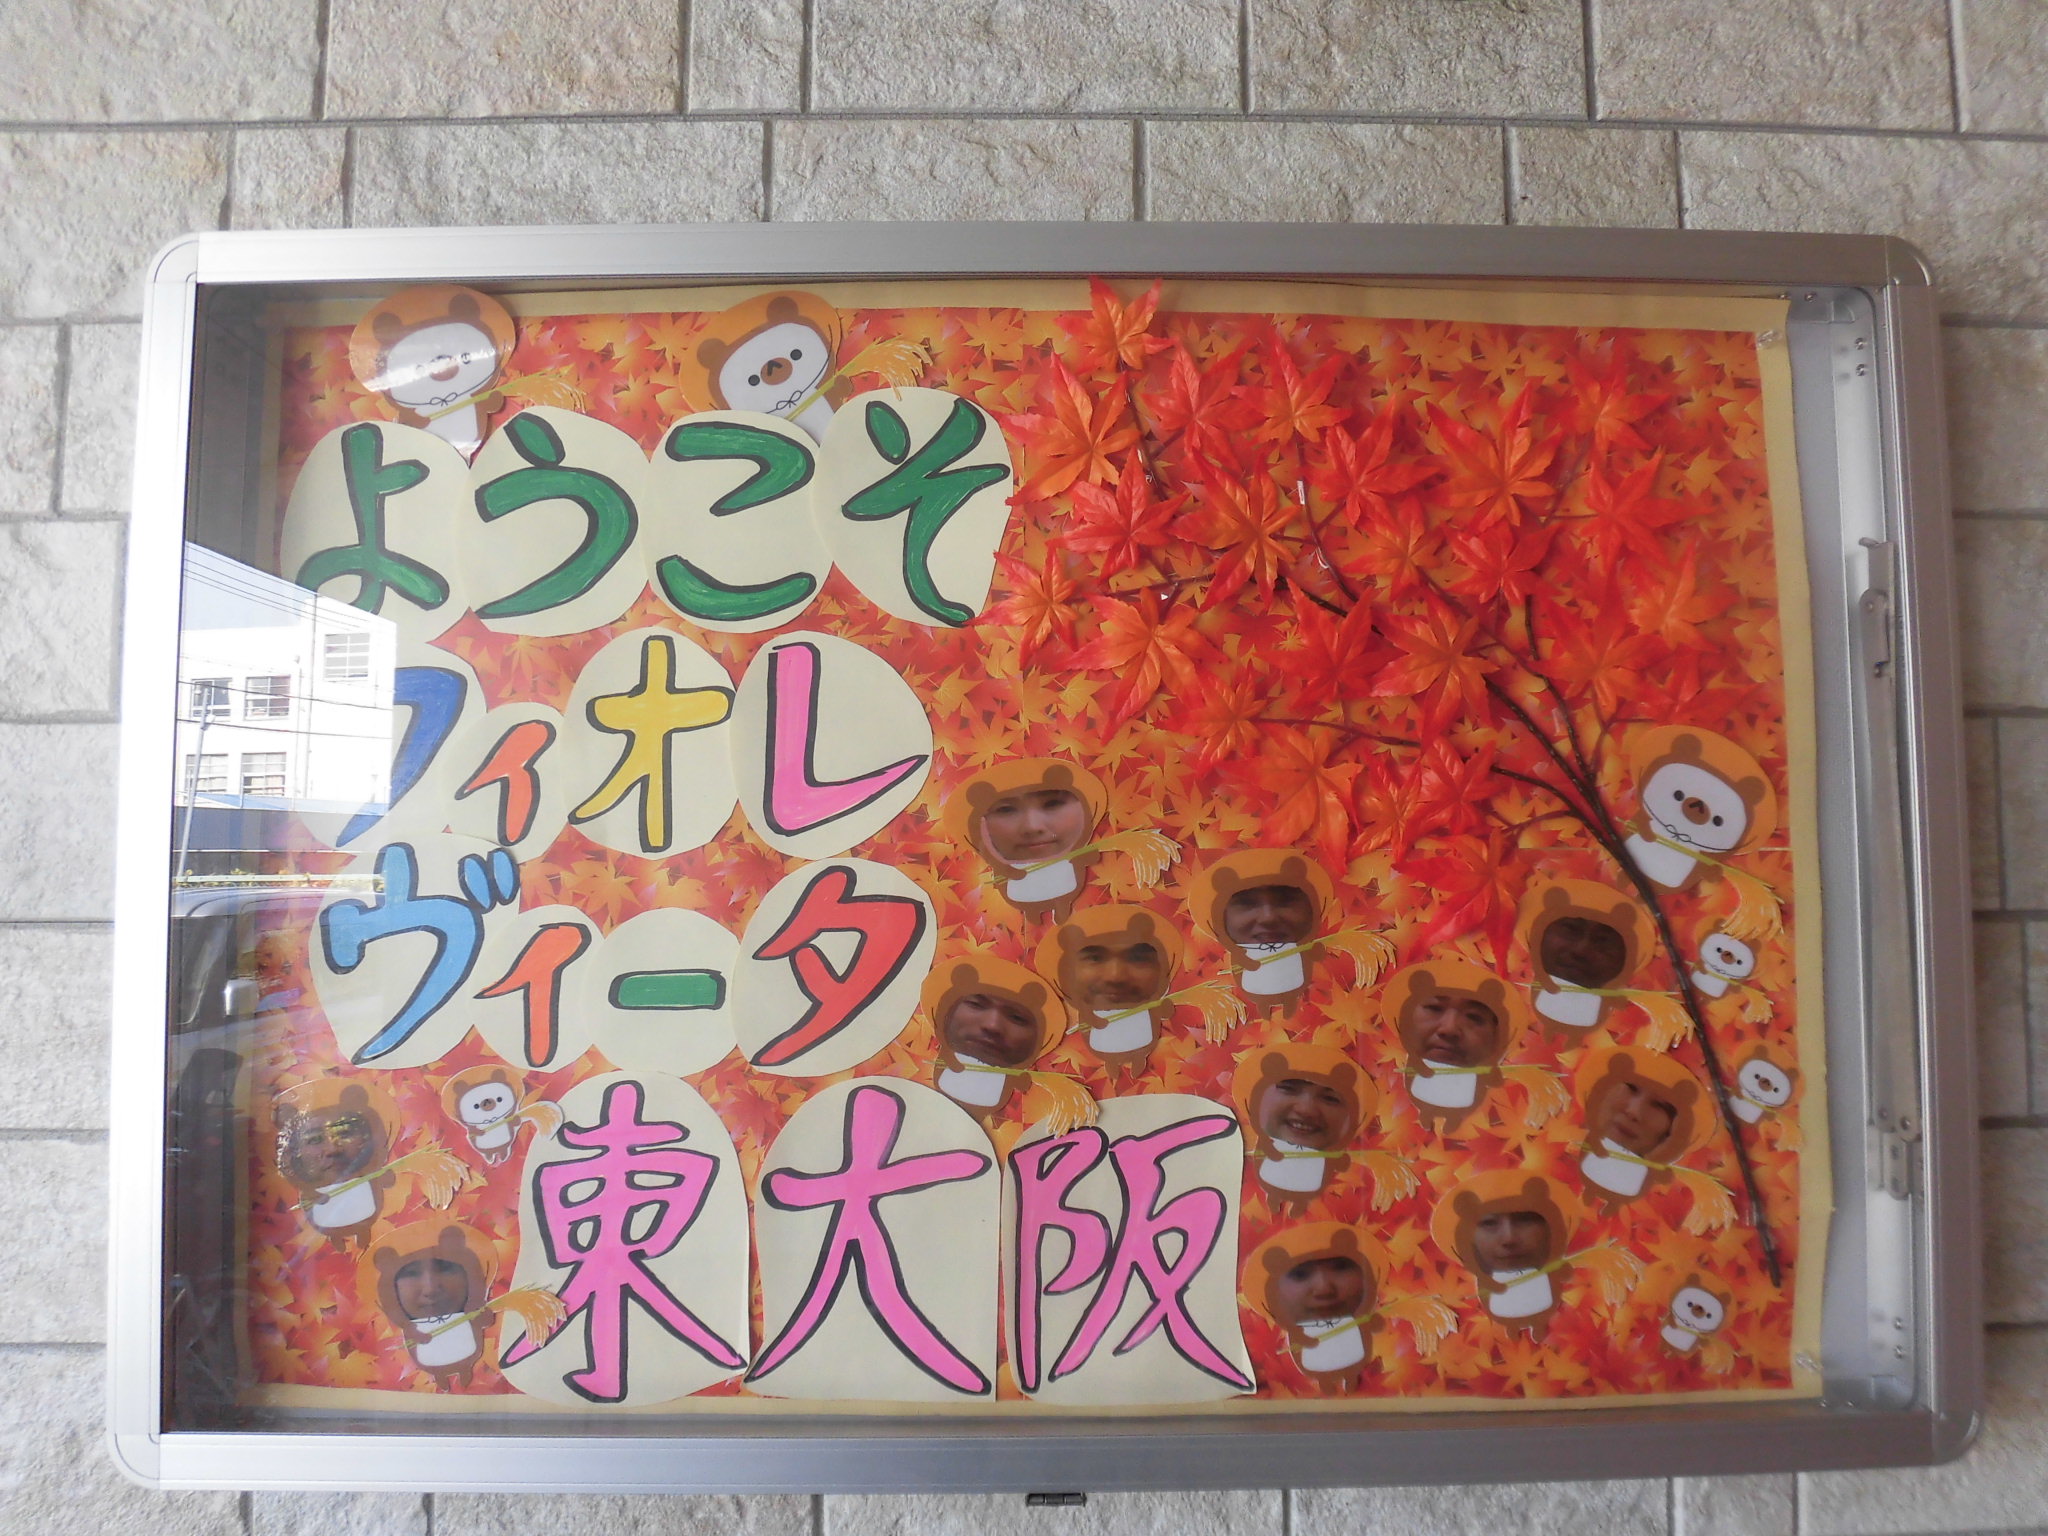 ようこそ
フィオレ
ヴィータ
東大阪